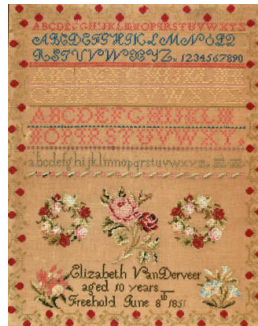 ABCDEFGHIJKLMNOPQRSTUVWXYZ
ABCDEFGHIJKLMNOPQ
RSTUVWXYZ. 1234567890
ABCDEFGHIJKLM
NOPQRSTUVWXY.
abcdefghijklmnopqrstuvwxyz.
Elizabeth VanDerveer
aged 10 years
Freehold June 8th 1851